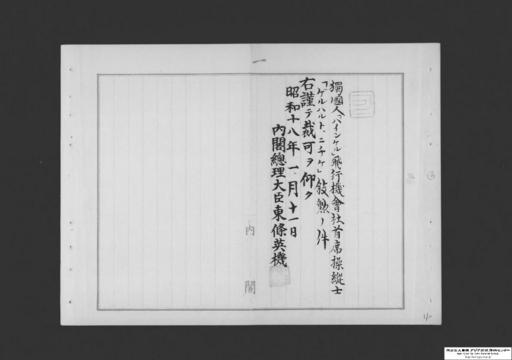 獨國人「ハインケル」飛行機會社首席操縱士
「ゲルハルト、ニチケ」敍勲ノ件
右謹テ裁可ヲ仰ク
昭和十八年一月十一日
內閣總理大臣東條英機
內閣